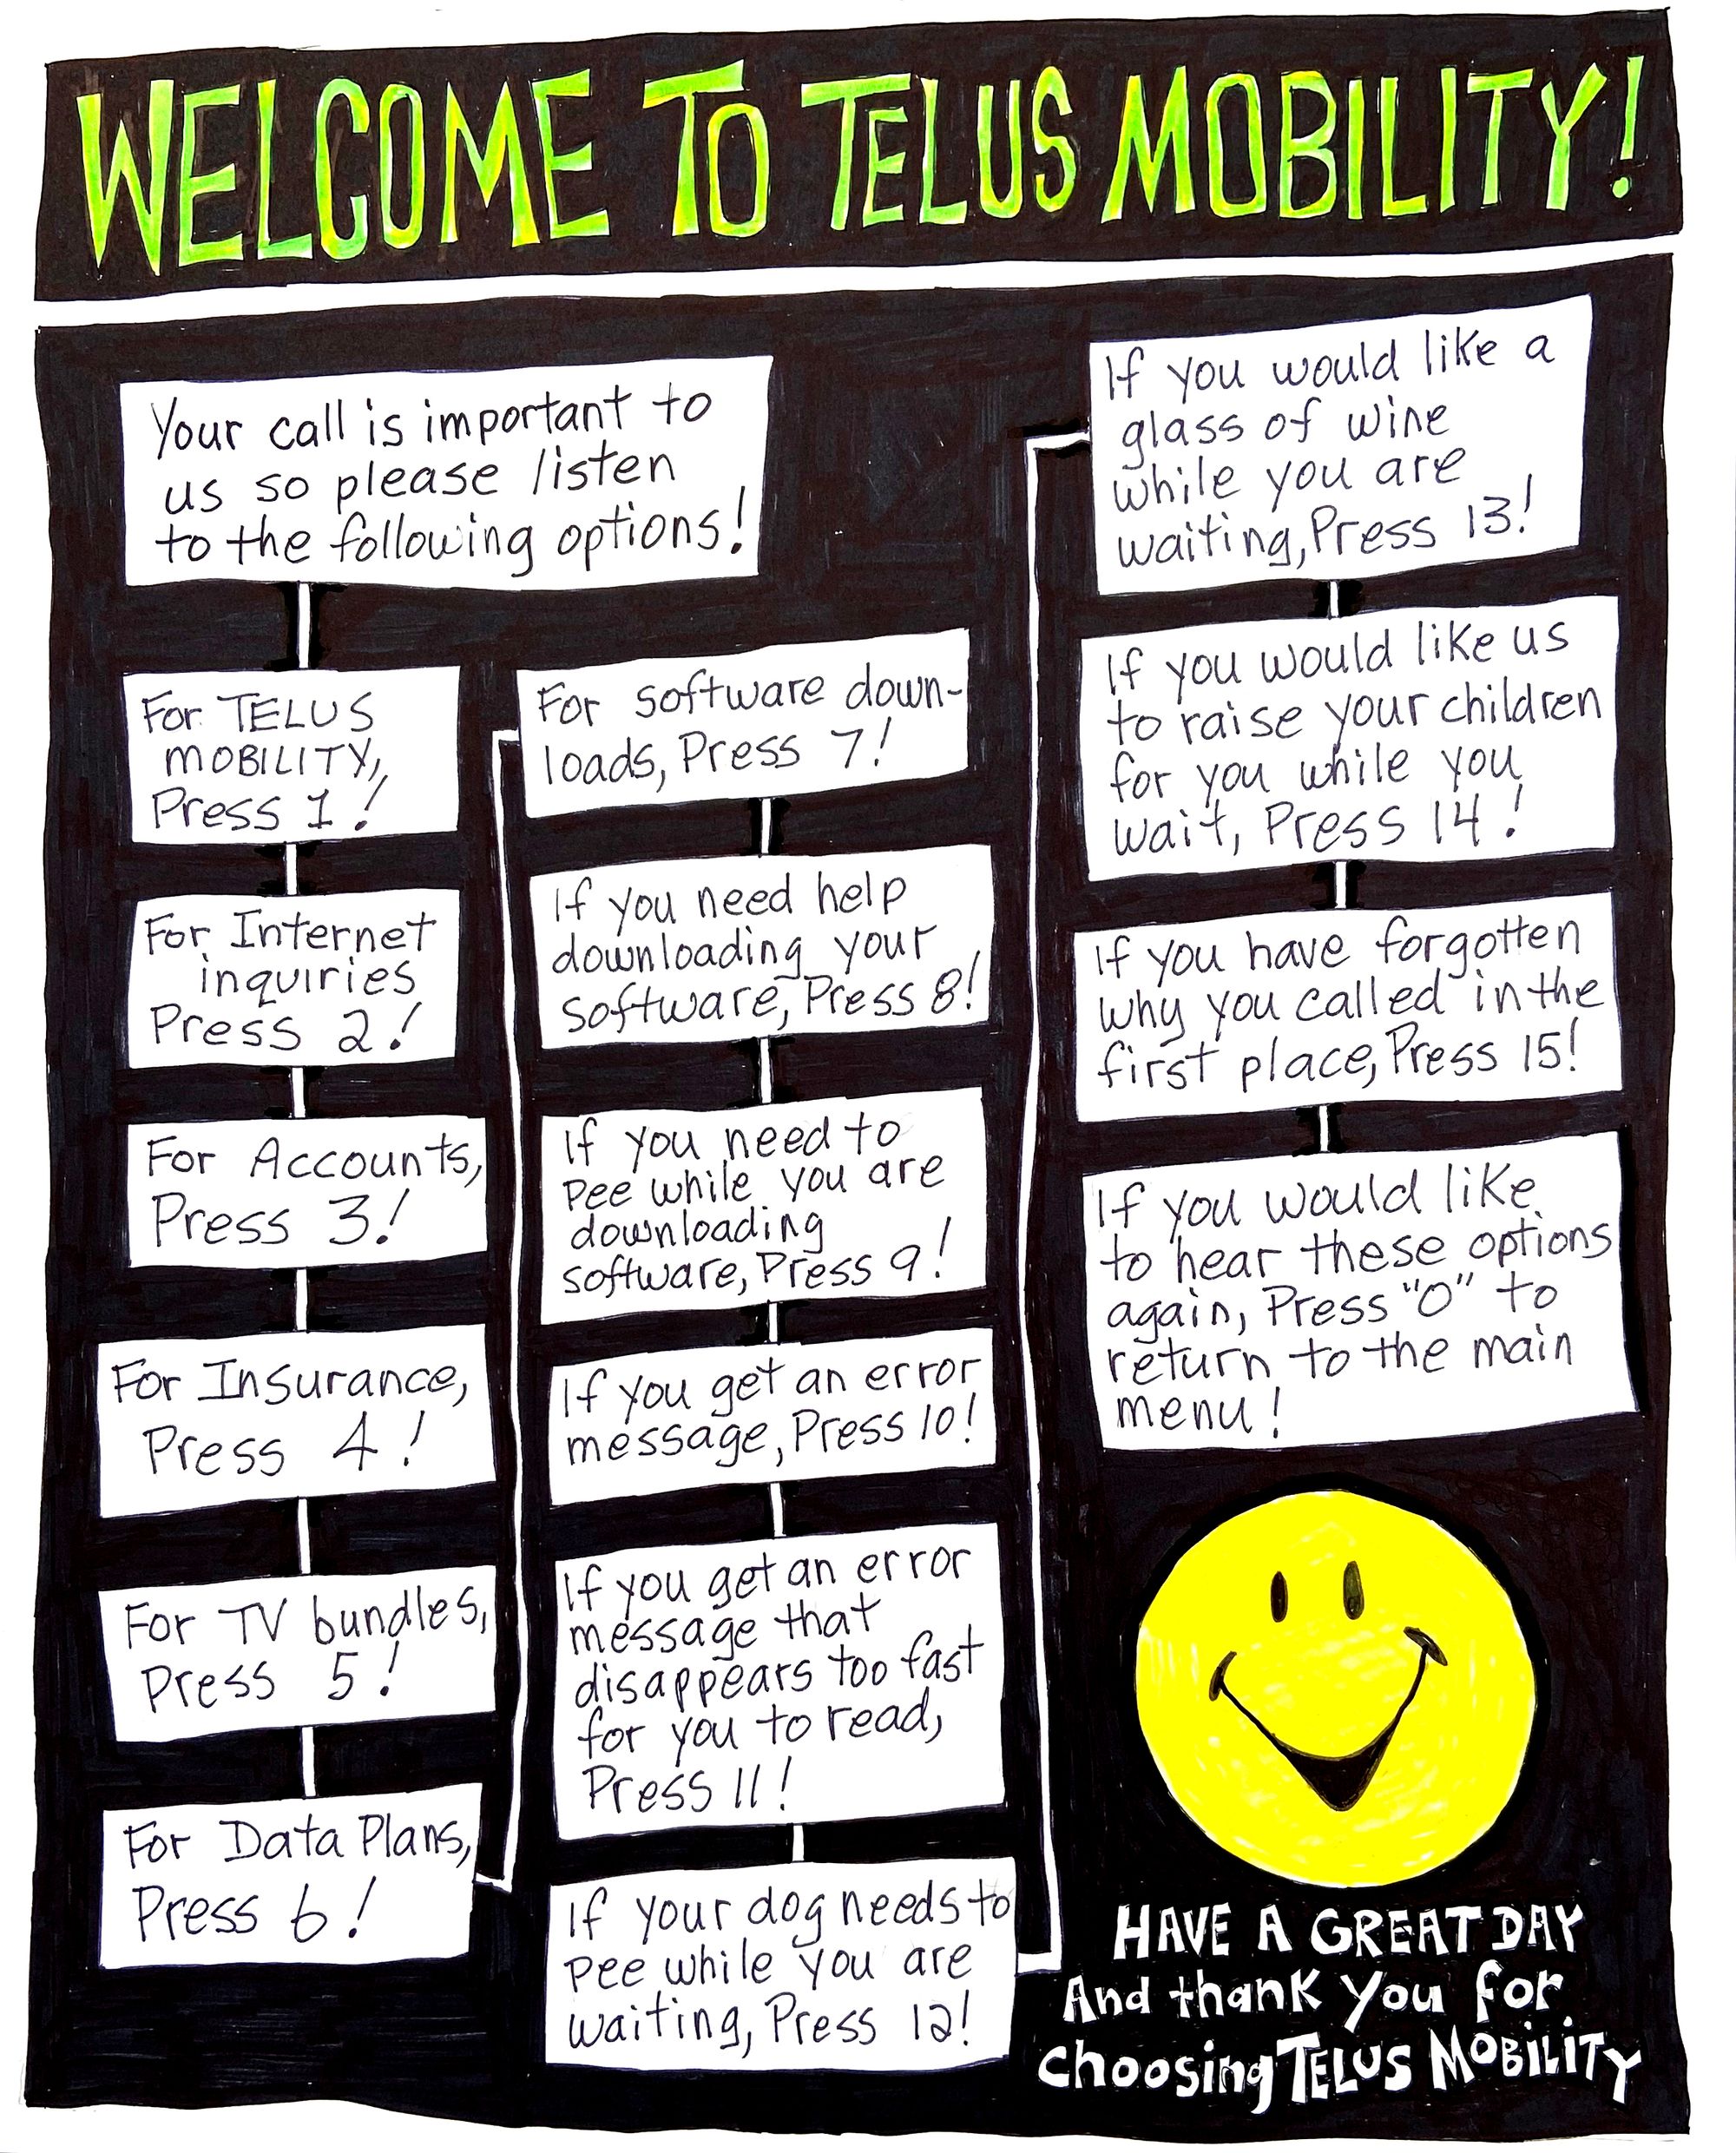 WELCOME TO TELUS MOBILITY!
Your call is important to
us so please listen
to the following options!
For TELUS
MOBILITY,
Press 1!
For Internet
inquiries
Press 2!
For Accounts,
Press 3!
For Insurance,
Press 4!
For TV bundles,
Press 5!
For Data Plans,
Press 6!
For software down-
loads, Press 7!
If you need help
downloading your
software, Press 8!
If you need to
pee while you are
downloading
software, Press 9!
If you get an error
message, Press 10!
If you get an error
message that
disappears too fast
for you to read,
Press 11!
If your dog needs to
pee while you are
waiting, Press 12!
If you would like a
glass of wine
while you are
waiting, Press 13!
If you would like us
to raise your children
for you while you
wait, Press 14!
If you have forgotten
why you called in the
first place, Press 15!
If you would like
to hear these options
again, Press "0" to
return to the main
menu!
HAVE A GREAT DAY
And thank you for
choosing TELUS MOBILITY